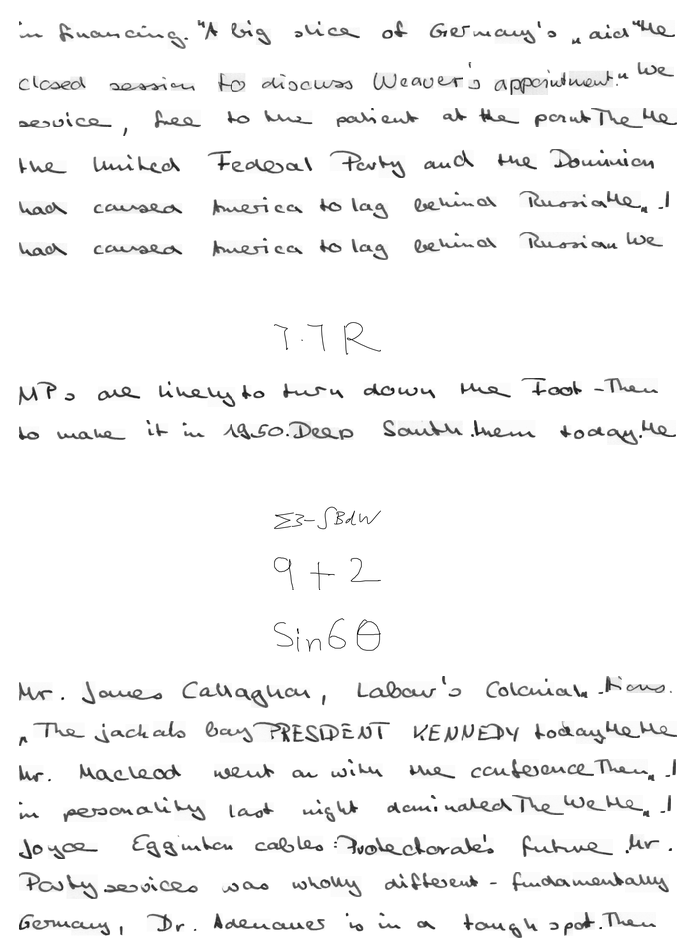 in financing. "A big slice of Germany's " aid "He
closed session to discuss Weaver's appointment." We
service, free to the patient at the point The He
the United Federal Party and the Dominion
had caused America to lag behind Russia He " . I
had caused America to lag behind Russian We
7.7R
MPs are likely to turn down the Foot - Then
to make it in 1950. Deep South . them today. He
Σ3-∫BdW
9+2
Sin6θ
Mr. James Callaghan, Labour's Colonial " . tions.
" The jackals bay PRESIDENT KENNEDY today He He
Mr. Macleod went on with the conference Then " . I
in personality last night dominated The We He " . I
Joyce Egginton cables : Protectorate's future . Mr.
Party services was wholly different - fundamentally
Germany, Dr. Adenauer is in a tough spot. Then